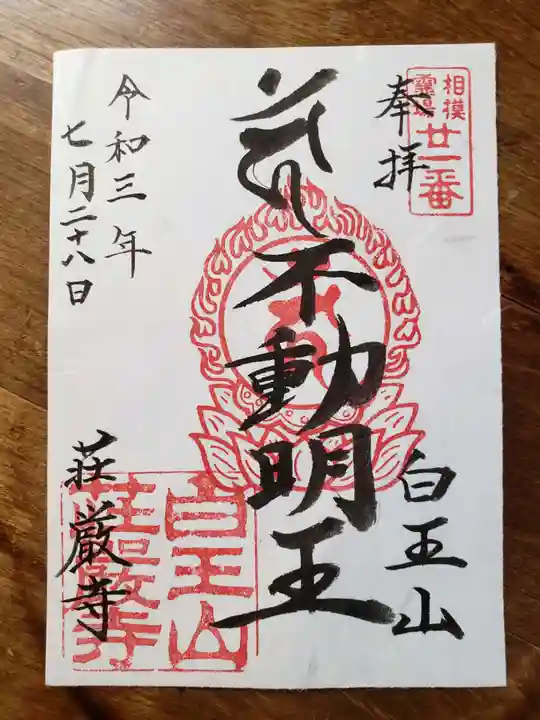 奉拝
相模
霊場
廿一番
白王山
不動明王
令和三年
七月二十八日
荘厳寺
白王山
荘厳寺